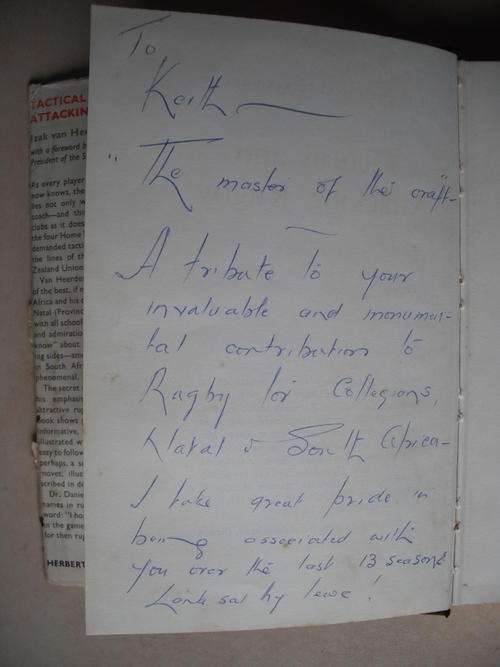 To
Keith
"The master of the craft"
A tribute to your
invaluable and monumen-
tal contribution to
Rugby for Collegians,
Natal & South Africa -
I take great pride in
being associated with
you over the last 13 seasons
Lank sal hy lewe!
TACTICAL
ATTACKIN
Izak van Hee
with a foreword b
President of the S
As every player
now knows, the
lies not only w
coach—and thi
clubs as it does
the four Home
demanded tacti
the lines of th
Zealand Union
Van Heerden
of the best, if n
Africa and his c
Natal (Provinc
with all school
and admiration
know" about
ing sides—amo
in South Afri
phenomenal.
The secret
this emphasi
attractive rug
book shows
informative,
illustrated w
easy to follow
perhaps, a se
moves; illus
scribed in de
Dr. Danie
names in ru
word: "I ho
in the game
for then rug
HERBERT